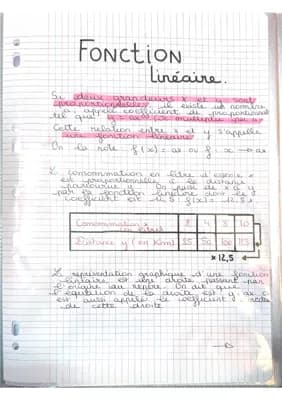 FONCTION
linéaire.
Si deux grandeurs x et y sont
proportionnelles, il existe un nombre
a appelé coefficient de proportionnalité
tel que y = a x
Cette relation entre x et y s'appelle
une fonction linéaire
On la note f(x) = ax ou f: x → ax
consommation en litre d'essence
est proportionnelle à la distance
parcourue y. On passe de x à y
par la fonction linéaire dont le
coefficient est 12,5 f(x) = 12,5 x
Consommation x 2 4 8 10
Distance y (en Km) 25 50 100 125
× 12,5
représentation graphique d'une fonction
linéaire est une droite passant par
l'origine du repère. On dit que
l'équation de la droite est y = ax
est aussi appelé le coefficient
de cette droite